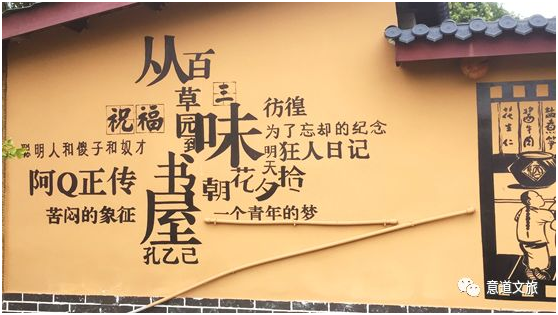 从百草园到三味书屋
祝福
彷徨
为了忘却的纪念
明天
狂人日记
聪明人和傻子和奴才
阿Q正传
朝花夕拾
苦闷的象征
一个青年的梦
孔乙己
花生仁
酱牛肉
盐煮笋
意道文旅